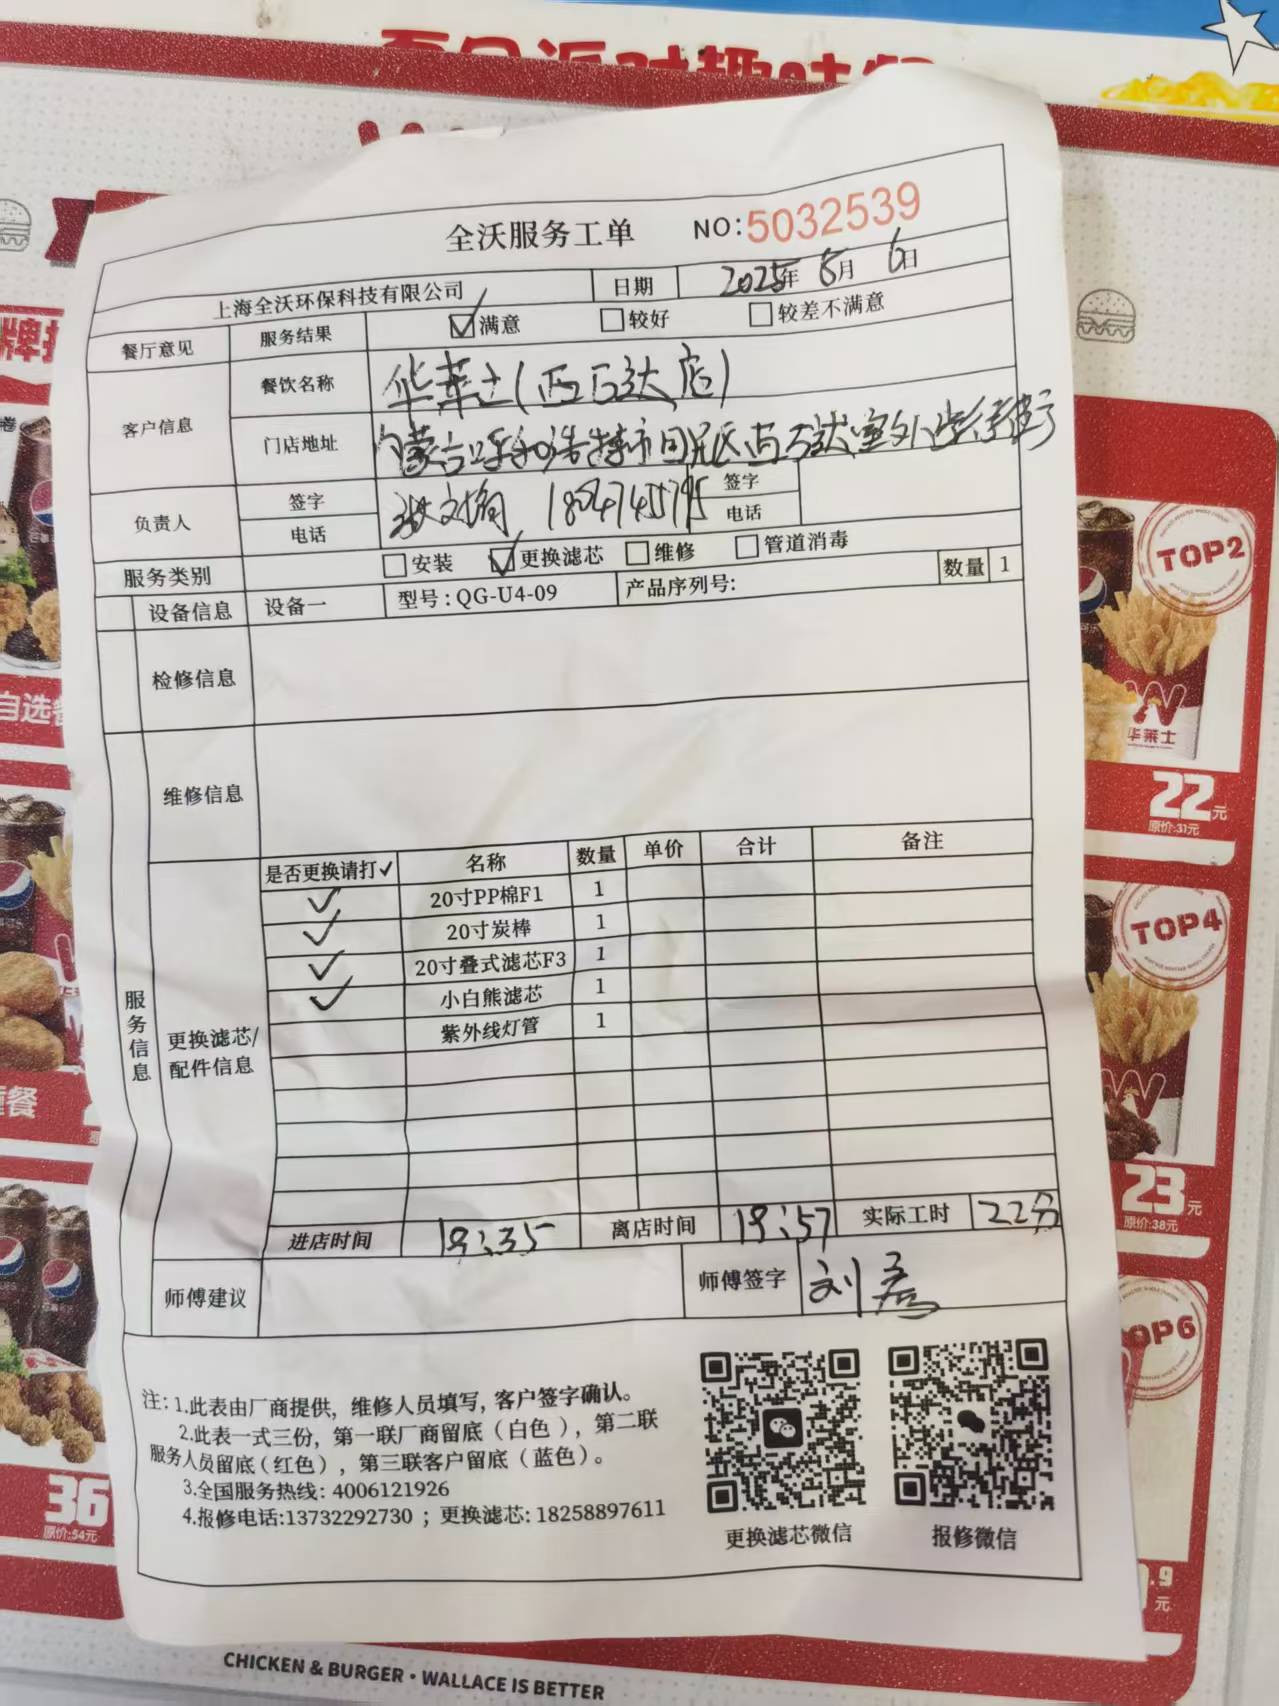 全沃服务工单
NO:5032539
上海全沃环保科技有限公司 日期 2025年 5月 6日
餐厅意见 服务结果 ☑满意 □较好 □较差不满意
客户信息 餐饮名称 华莱士(西万达店)
门店地址 内蒙古呼和浩特市回民区西万达室外步行街
负责人 签字 签字
电话 18047455795 电话
服务类别 □安装 ☑更换滤芯 □维修 □管道消毒
设备信息 设备一 型号:QG-U4-09 产品序列号: 数量 1
检修信息
维修信息
服务信息
更换滤芯/
配件信息
是否更换请打✓ 名称 数量 单价 合计 备注
✓ 20寸PP棉F1 1
✓ 20寸炭棒 1
✓ 20寸叠式滤芯F3 1
✓ 小白熊滤芯 1
紫外线灯管 1
进店时间 19:35 离店时间 19:57 实际工时 22分
师傅建议 师傅签字 刘彦
注: 1.此表由厂商提供, 维修人员填写, 客户签字确认。
2.此表一式三份, 第一联厂商留底(白色), 第二联
服务人员留底(红色), 第三联客户留底(蓝色)。
3.全国服务热线: 4006121926
4.报修电话:13732292730 ; 更换滤芯: 18258897611
更换滤芯微信 报修微信
TOP2
华莱士
22元
原价:31元
TOP4
23元
原价:38元
TOP6
.9
元
自选
餐
36
原价:54元
CHICKEN & BURGER · WALLACE IS BETTER